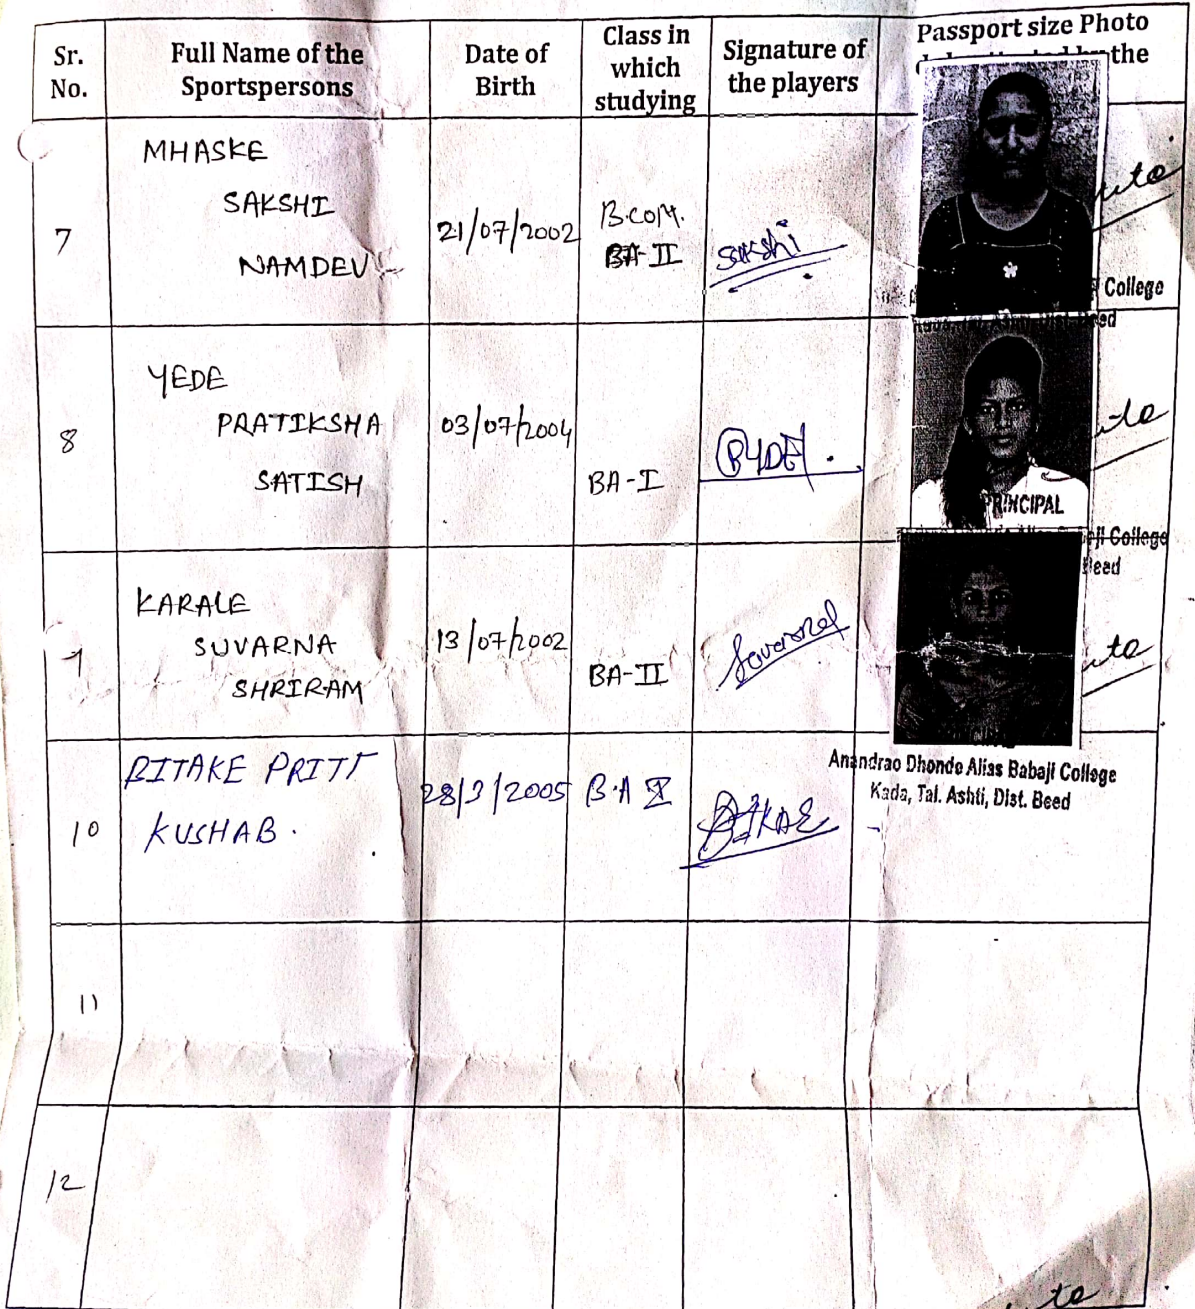 Sr. No.
Full Name of the Sportspersons
Date of Birth
Class in which studying
Signature of the players
Passport size Photo
the
7
MHASKE
SAKSHI
NAMDEV
21/07/2002
B.COM.
BA-II
sakshi
College
8
YEDE
PRATIKSHA
SATISH
03/07/2004
BA-I
PRINCIPAL
College
KARALE
SUVARNA
SHRIRAM
13/07/2002
BA-II
10
BITAKE PRITI
KUSHAB.
28/3/2005
B.A I
Anandrao Dhonde Alias Babaji College
Kada, Tal. Ashti, Dist. Beed
11
12